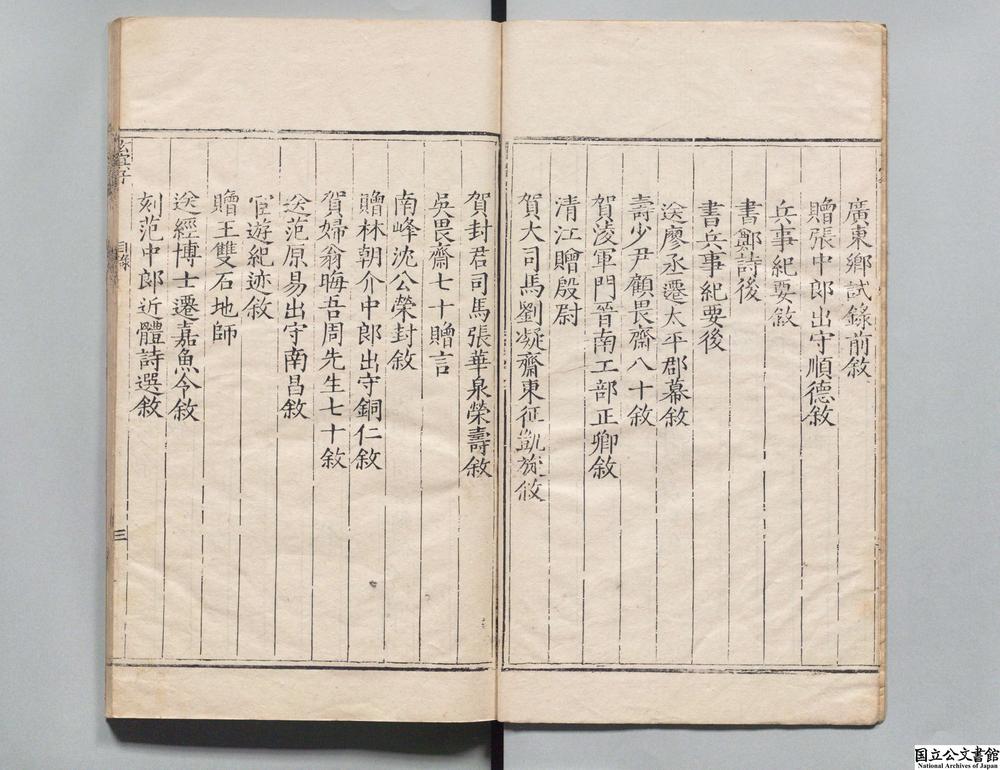 廣東鄉試錄前敘
贈張中郎出守順德敘
兵事紀要敘
書鄭詩後
書兵事紀要後
送廖丞遷太平郡幕敘
壽少尹顧畏齋八十敘
賀淩軍門晉南工部正卿敘
清江贈殷尉
賀大司馬劉凝齋東征凱旋敘
賀封君司馬張華泉榮壽敘
吳畏齋七十贈言
南峰沈公榮封敘
贈林朝介中郎出守銅仁敘
賀婦翁晦吾周先生七十敘
送范原易出守南昌敘
宦遊紀迹敘
贈王雙石地師
送經博士遷嘉魚令敘
刻范中郎近體詩選敘
目錄
三
国立公文書館
National Archives of Japan